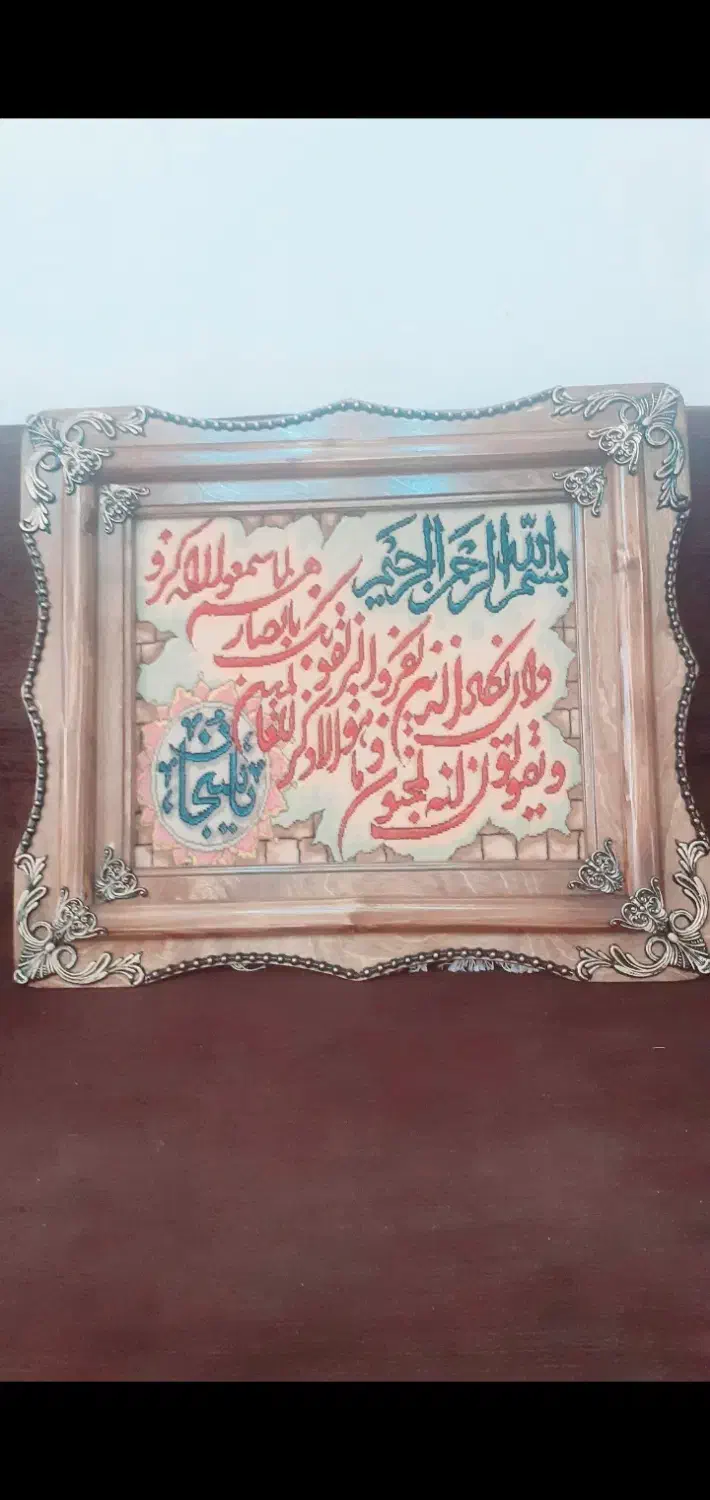 بسم الله الرحمن الرحیم
وان یکاد الذین کفروا لیزلقونک بابصارهم لما سمعوا الذکر و
یقولون انه لمجنون و ما هو الا ذکر للعالمین
یا سبحان